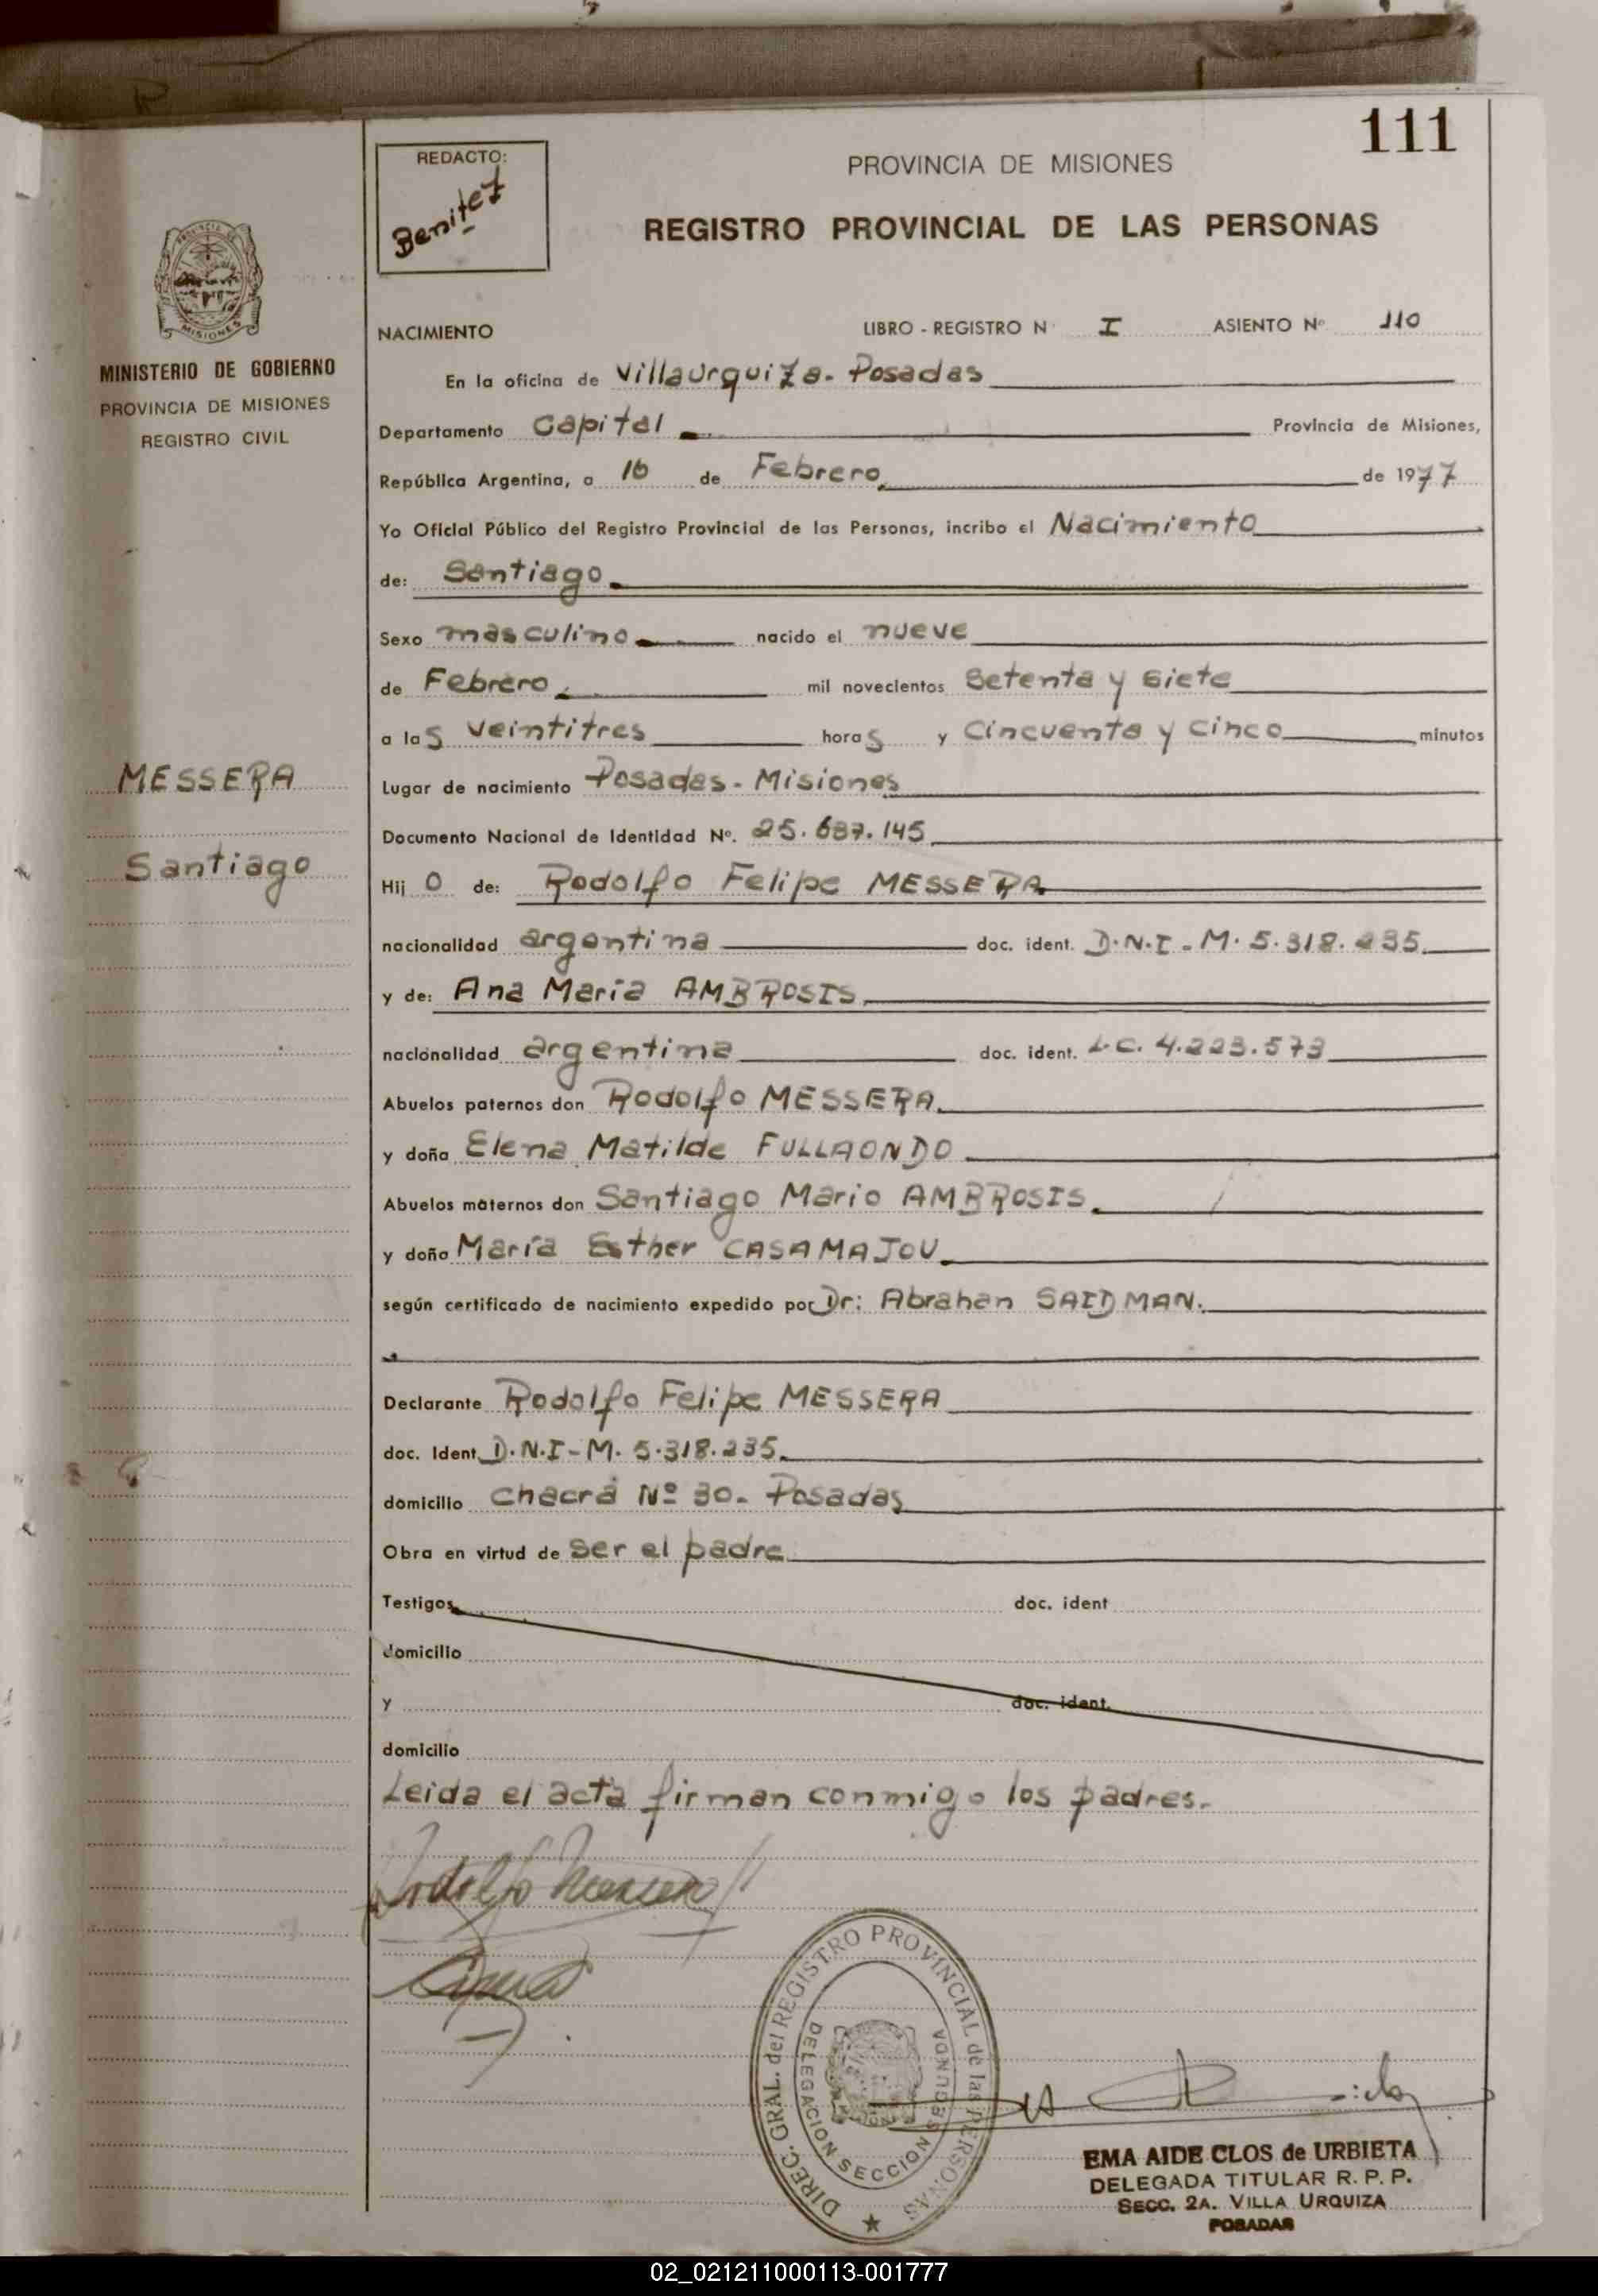 111
REDACTO:
Benitez
PROVINCIA DE MISIONES
REGISTRO PROVINCIAL DE LAS PERSONAS
MISIONES
MINISTERIO DE GOBIERNO
PROVINCIA DE MISIONES
REGISTRO CIVIL
MESSERA
Santiago
NACIMIENTO LIBRO - REGISTRO N° I ASIENTO N° 110
En la oficina de Villa Urquiza - Posadas
Departamento Capital Provincia de Misiones,
República Argentina, a 16 de Febrero de 1977
Yo Oficial Público del Registro Provincial de las Personas, incribo el Nacimiento
de: Santiago
Sexo masculino nacido el nueve
de Febrero mil novecientos Setenta y siete
a las veintitres horas y Cincuenta y cinco minutos
Lugar de nacimiento Posadas - Misiones
Documento Nacional de Identidad N°. 25.687.145
Hijo de: Rodolfo Felipe MESSERA
nacionalidad argentina doc. ident. D.N.I - M. 5.318.235
y de: Ana María AMBROSIS
nacionalidad argentina doc. ident. L.C. 4.223.573
Abuelos paternos don Rodolfo MESSERA
y doña Elena Matilde FULLAONDO
Abuelos maternos don Santiago Mario AMBROSIS
y doña María Esther CASAMAJOU
según certificado de nacimiento expedido por Dr: Abrahan SAIDMAN.
Declarante Rodolfo Felipe MESSERA
doc. Ident. D.N.I - M. 5.318.235
domicilio Chacra Nº 30 - Posadas
Obra en virtud de ser el padre
Testigos doc. ident
domicilio
y doc. ident.
domicilio
Leida el acta firman conmigo los padres.
DIREC. GRAL. del REGISTRO PROVINCIAL de las PERSONAS
DELEGACION SECCION SEGUNDA
EMA AIDE CLOS de URBIETA
DELEGADA TITULAR R. P. P.
SECC. 2A. VILLA URQUIZA
POSADAS
02_021211000113-001777